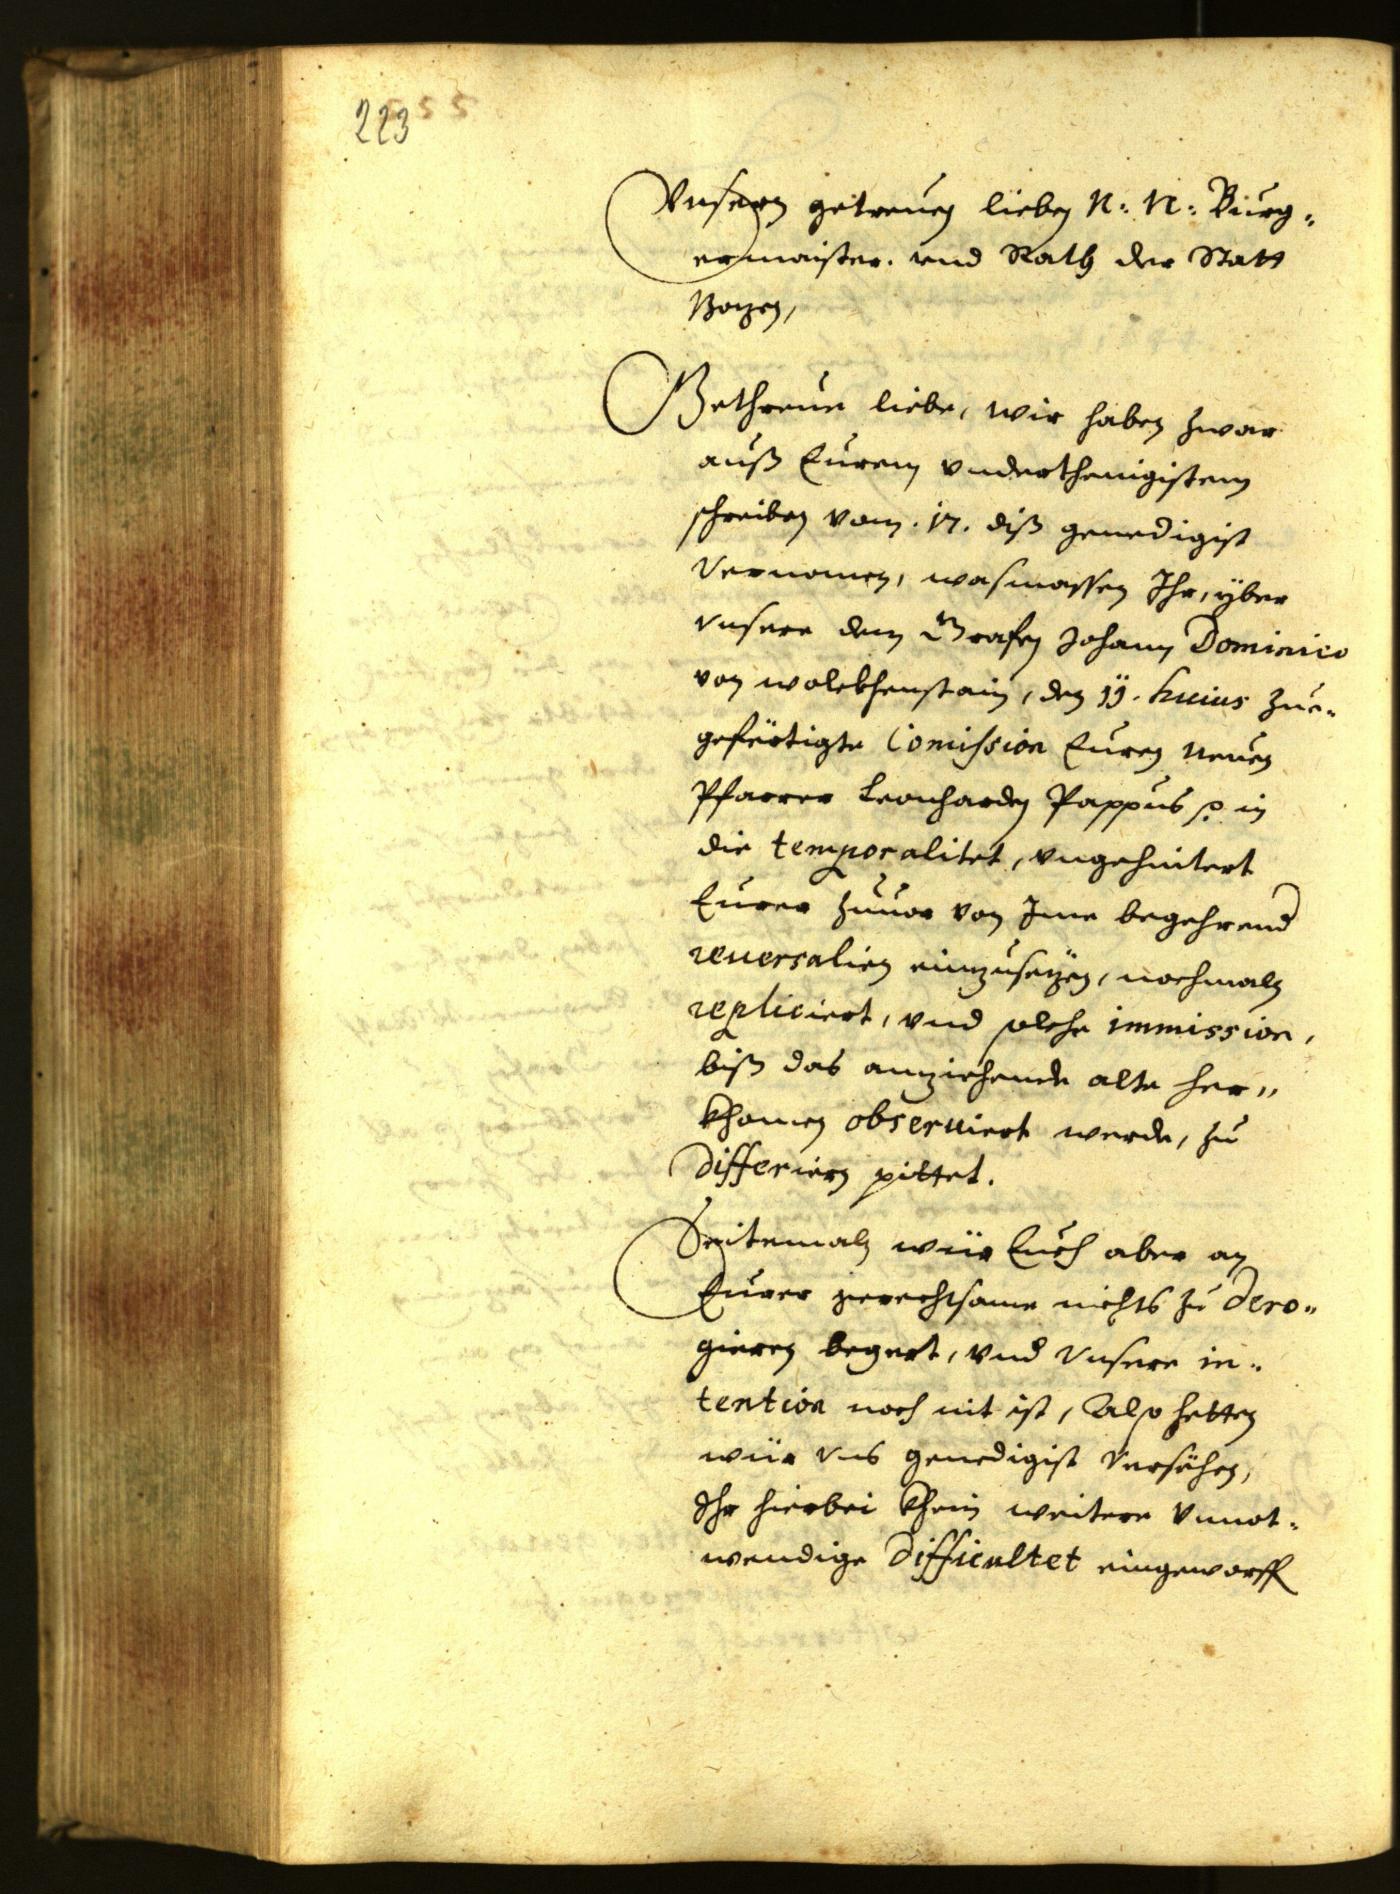 223
Vnsern getreuen lieben N: N: Burg-
ermaister. vnd Rath der Statt
Bozen,
Gethreue liebe, wir haben zwar
auß Eurem vnderthenigistem
schreiben vom .17. diß genedigist
Vernomen, wasmassen Ihr, yber
vnsere dem Grafen Johann Dominico
von wolckhenstain, den 11. huius zue-
gefertigte Comission Euren neuen
Pfarrer Leonharden Pappus in
die temporalitet, vngehintert
Eurer zuuor von Ime begehrend
reuersalien einzusezen, nochmaln
repliciert, vnd solche immission,
biß das anziehende alte her-
khomen obseruiert werde, zu
differiern pittet.
Seitemaln wür Euch aber an
Eurer gerechtsame nichts zu dero-
gieren begert, vnd Vnsere in-
tention noch nit ist, Also hetten
wür vns genedigist Versehen,
Ihr hierbei khein weitere vnnot-
wendige difficultet eingeworff